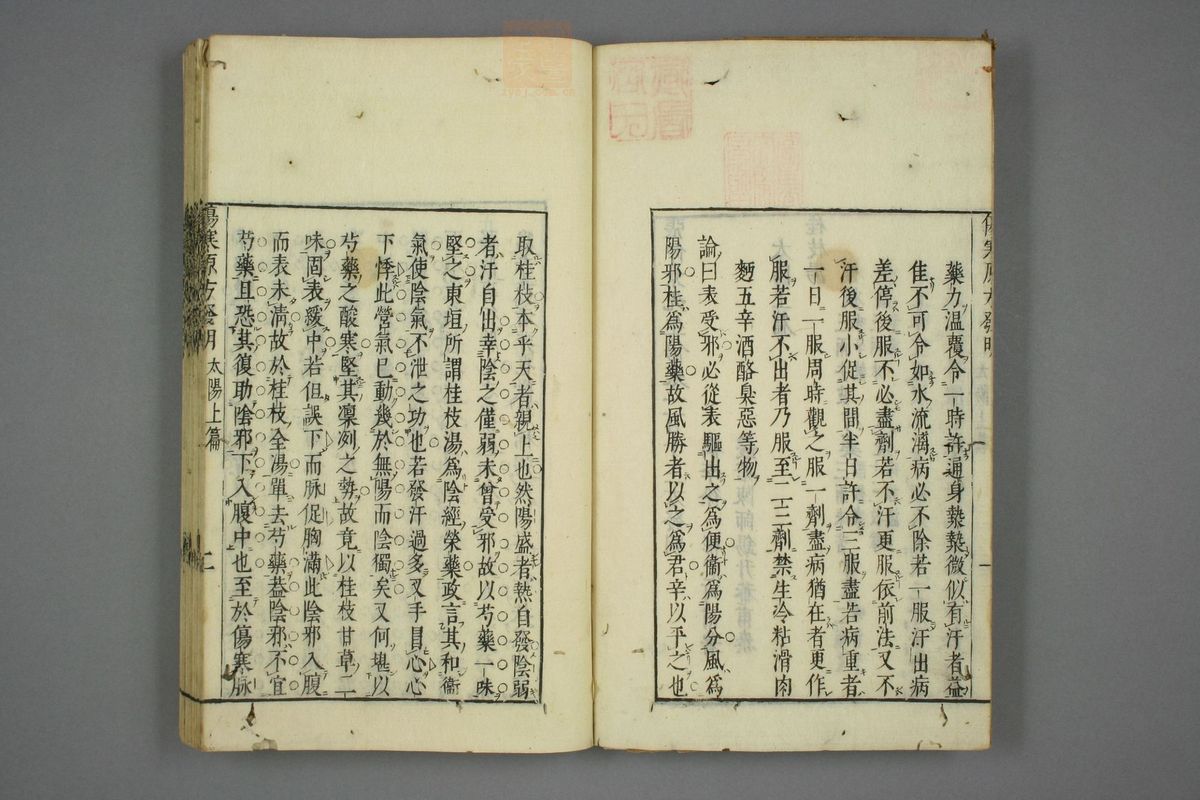 藥力溫覆令一時許通身漐漐微似有汗者益
佳不可令如水流漓病必不除若一服汗出病
差停後服不必盡劑若不汗更服依前法又不
汗後服小促其間半日許令三服盡若病重者
一日一服周時觀之服一劑盡病猶在者更作
服若汗不出者乃服至二三劑禁生冷粘滑肉
麪五辛酒酪臭惡等物
論曰表受邪必從表驅出之為便衞為陽分風為
陽邪桂為陽藥故風勝者以之為君辛以乎之也
取桂枝本乎天者親上也然陽盛者熱自發陰弱
者汗自出幸陰之僅弱未曾受邪故以芍藥一味
堅之東垣所謂桂枝湯為陰經榮藥政言其和衞
氣使陰氣不泄之功也若發汗過多叉手冒心心
下悸此營氣已動幾於無陽而陰獨矣又何堪以
芍藥之酸寒堅其凛冽之勢故竟以桂枝甘草二
味固表緩中若但誤下而脉促胸滿此陰邪入腹
而表未清故於桂枝全湯單去芍藥葢陰邪不宜
芍藥且恐其復助陰邪下入腹中也至於傷寒脉
傷寒原方發明 太陽上篇 二